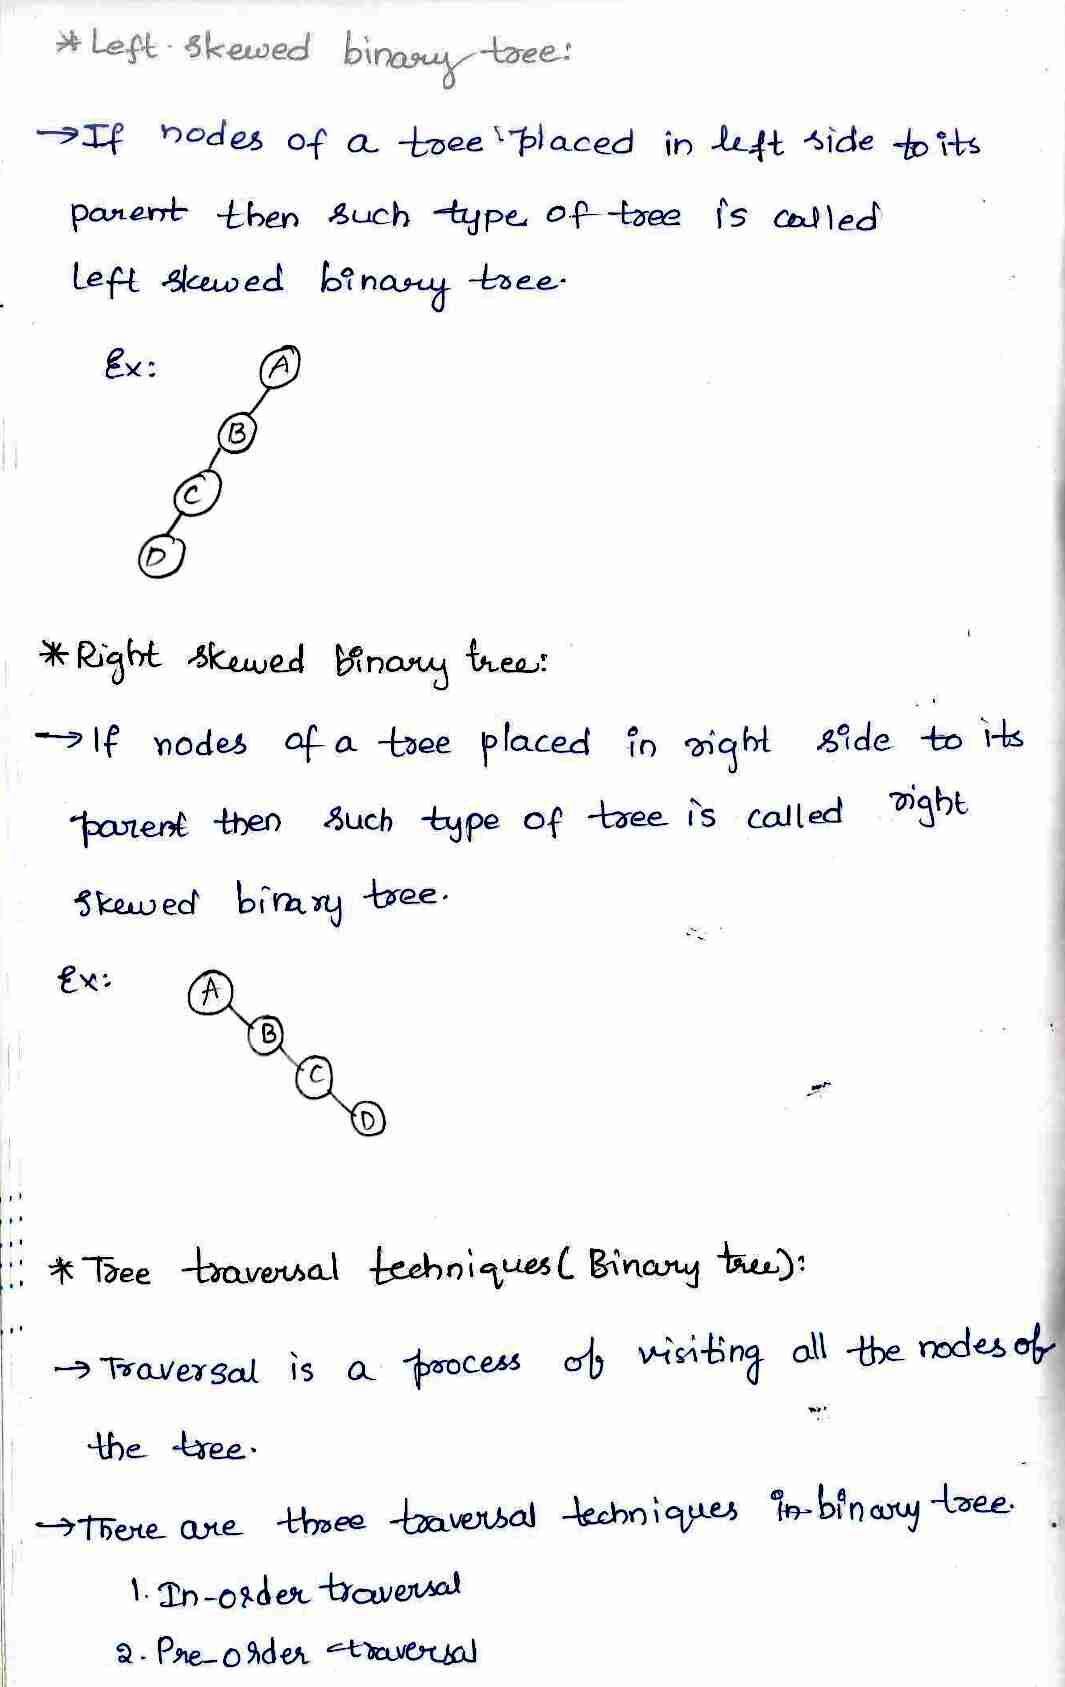 * Left skewed binary tree:
→ If nodes of a tree placed in left side to its
parent then such type of tree is called
left skewed binary tree.
Ex:
A
B
C
D
* Right skewed binary tree:
→ If nodes of a tree placed in right side to its
parent then such type of tree is called right
skewed binary tree.
Ex:
A
B
C
D
* Tree traversal techniques (Binary tree):
→ Traversal is a process of visiting all the nodes of
the tree.
→ There are three traversal techniques in binary tree.
1. In-order traversal
2. Pre-order traversal